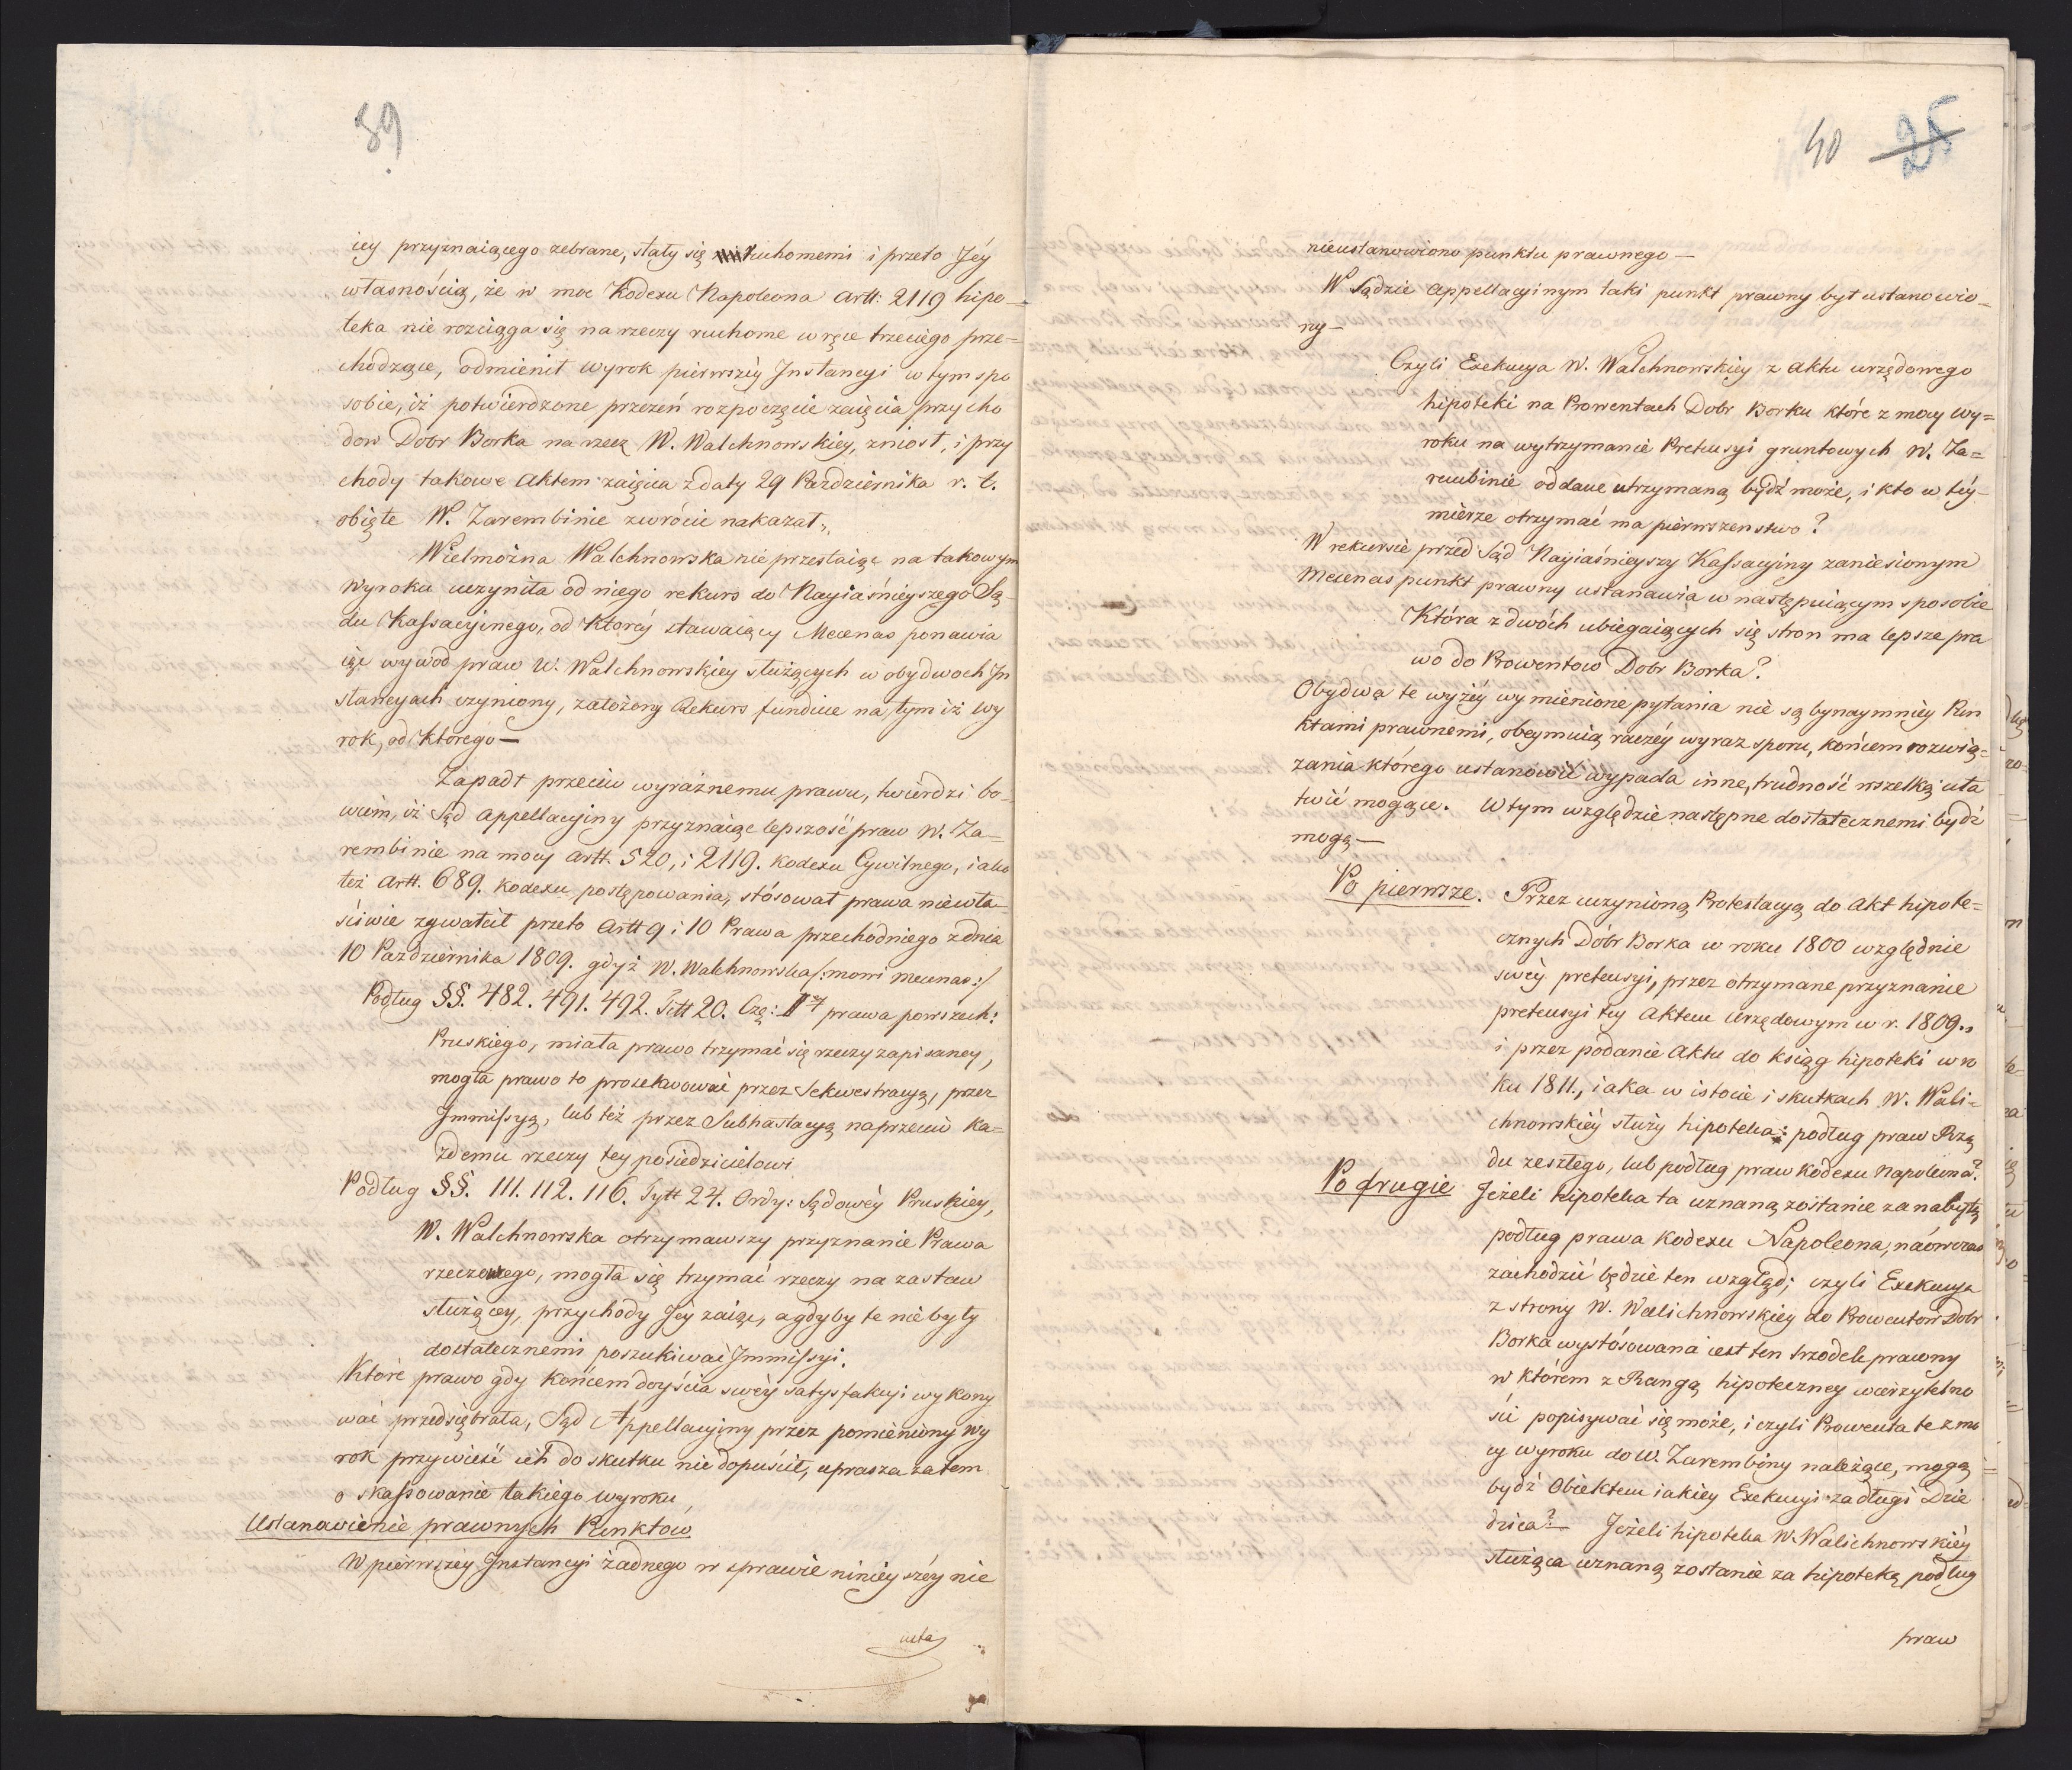 39
iey przyznaiącego zebrane, stały się ruchomemi i przeto Jéy
własnością, że w moc Kodexu Napoleona Artt: 2119 hipo-
teka nie rozciąga się na rzeczy ruchome w ręce trzeciego prze=
chodzące, odmienił wyrok pierwszéy Instancyi w tym spo
sobie, iż potwierdzone przezeń rozpoczęcie zaięcia przycho
dow Dobr Borka na rzecz W. Walchnowskiey, zniosł, i przy
chody takowe Aktem zaięcia z daty 29 Pazdziernika r. t.
obięte W. Zarembinie zwrócić nakazał.,
Wielmożna Walchnowska nie przestaiąc na takowym
wyroku uczyniła od niego rekurs do Nayiaśnieyszego Są-
du Kassacyjnego, od Któréy stawaiący Mecenas ponawia
iąc wywod praw W. Walchnowskiey służących w obydwoch In
stancyach czyniony, założony Rekurs funduie na tym iż wy
rok, od którego —
Zapadł przeciw wyraźnemu prawu, twierdzi bo-
wiem, iż Sąd Appellacyjny przyznaiąc lepszość praw W. Za-
rembinie na mocy Artt. 520, i 2119. Kodexu Cywilnego, iako
też Artt. 689. Kodexu postępowania, stósował prawa niewła-
ściwie zgwałcił przeto Artt 9 i 10 Prawa przechodniego z dnia
10 Pazdziernika 1809. gdyż W. Walchnowska /: mowi mecenas :/
Podług §§. 482. 491. 492. Titt 20. Czę: prawa powszech:
Pruskiego, miała prawo trzymać się rzeczy zapisaney,
mogła prawo to prozekwować przez Sekwestracyą, przez
Immissyą, lub też przez Subhastacyą naprzeciw ka-
żdemu rzeczy tey posiedzicielowi
Podług §§. 111. 112. 116. Tytt 24. Ordy: Sądowéy Pruskiey,
W. Walchnowska otrzymawszy przyznanie Prawa
rzeczowego, mogła się trzymać rzeczy na zastaw
służącey, przychody Jéy zaiąć, a gdyby te nie były
dostatecznemi poszukiwać Immissyi.
Które prawo gdy końcem doyścia swéy satysfakcyi wykony
wać przedsiębrała, Sąd Appellacyjny przez pomieniony wy
rok przywieść ich do skutku nie dopuścił, uprasza zatem
o skassowanie takiego wyroku,
Ustanowienie prawnych Punktow
W pierwszéy Instancyi żadnego w sprawie ninieyszéy nie
usta
40 25
nieustanowiono punktu prawnego —
W Sądzie Appellacyinym taki punkt prawny był ustanowio=
ny —
Czyli Exekucya W. Walchnowskiey z Aktu urzędowego
hipoteki na Prowentach Dobr Borku które z mocy wy=
roku na wytrzymanie Pretensyi gruntowych W. Za=
rembinie oddane utrzymaną bydź może, i kto w téy-
mierze otrzymać ma pierwszenstwo?
W rekursie przed Sąd Nayiaśnieyszy Kassacyiny zaniesionym
Mecenas punkt prawny ustanawia w następuiącym sposobie
Która z dwóch ubiegaiących się stron ma lepsze pra
wo do Prowentow Dobr Borka?
Obydwa te wyżéy wymienione pytania nie są bynaymniéy Pun
ktami prawnemi, obeymuią raczéy wyraz sporu, końcem rozwią=
zania którego ustanowić wypada inne, trudność wszelką uła
twić mogące. W tym względzie następne dostatecznemi bydź
mogą —
Po pierwsze. Przez uczynioną Protestacyą do Akt hipote=
cznych Dóbr Borka w roku 1800 względnie
swéy pretensyi, przez otrzymane przyznanie
pretensyi tey Aktem Urzędowym w r. 1809.,
i przez podanie Aktu do ksiąg hipoteki w ro
ku 1811., iaka w istocie i skutkach W. Wali=
chnowskiéy służy hipoteka: podług praw Rzą
du zeszłego, lub podług praw kodexu Napoleona?
Po drugie Jeżeli hipoteka ta uznaną zostanie za nabytą
podług prawa Kodexu Napoleona, naówczas
zachodzić będzie ten wzgląd; czyli Exekucya
z strony W. Walichnowskiey do Prowentow Dobr
Borka wystósowana iest ten srzodek prawny
w którem z Rangą hipoteczney wierzytelno
ści popisywać się może, i czyli Prowenta te z mo
cy wyroku do W. Zarembiny należące, mogą
bydź Obiektem iakiey Exekucyi za długi Dzie
dzica? — Jeżeli hipoteka W. Walichnowskiéy
służąca uznaną zostanie za hipoteką podług
praw